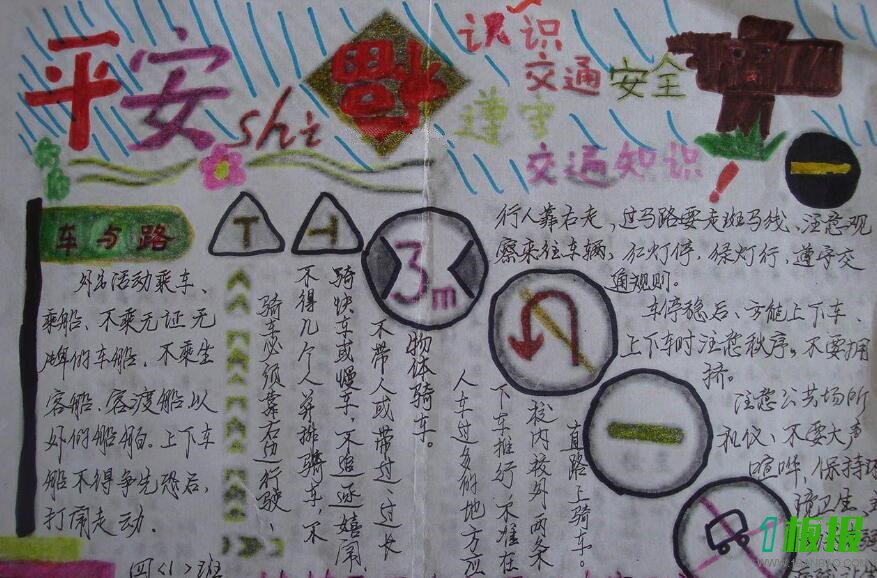 平安shi福
认识
交通安全
遵守
交通知识！
车与路
外出活动乘车、
乘船、不乘无证无
牌的车船、不乘坐
客船、客渡船以
外的船舶。上下车
船不得争先恐后,
打闹走动.
四〈1〉班
骑车必须靠右边行驶、
不得几个人并排骑车、不
骑快车或慢车,不追逐嬉闹、
不带人或带过、过长
物体骑车。
3m
人车过多的地方应
下车推行、不准在
校内校外两条
直路上骑车。
行人靠右走,过马路要走斑马线、注意观
察来往车辆,红灯停,绿灯行,遵守交
通规则。
车停稳后、方能上下车、
上下车时注意秩序,不要拥
挤。
注意公共场所
礼仪、不要大声
喧哗,保持环
境卫生,
1板报